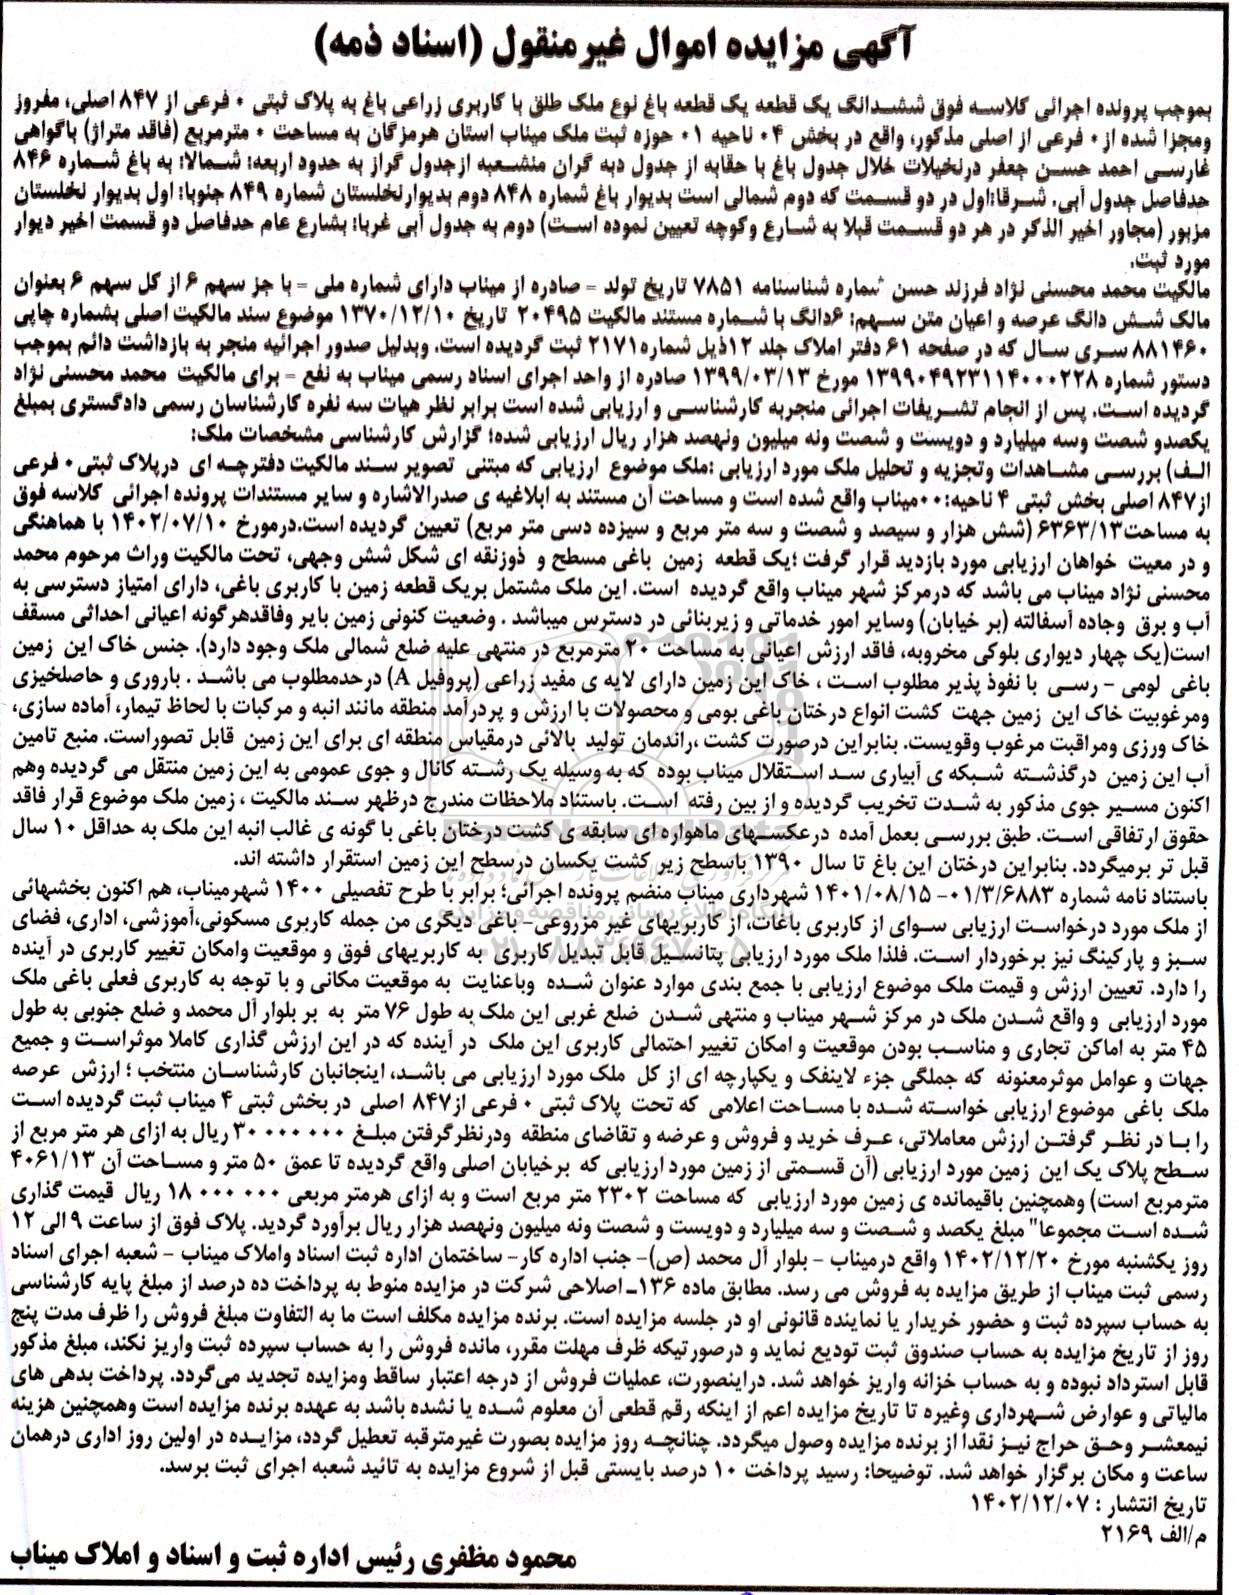 آگهی مزایده اموال غیرمنقول (اسناد ذمه)
بموجب پرونده اجرائی کلاسه فوق ششدانگ یک قطعه یک قطعه باغ نوع ملک طلق با کاربری زراعی باغ به پلاک ثبتی ۰ فرعی از ۸۴۷ اصلی، مفروز
ومجزا شده از ۰ فرعی از اصلی مذکور، واقع در بخش ۰۴ ناحیه ۰۱ حوزه ثبت ملک میناب استان هرمزگان به مساحت ۰ مترمربع (فاقد متراژ) باگواهی
غارسی احمد حسن جعفر درنخیلات خلال جدول باغ با حقابه از جدول دبه گران منشعبه ازجدول گراز به حدود اربعه: شمالا: به باغ شماره ۸۴۶
حدفاصل جدول آبی. شرقا:اول در دو قسمت که دوم شمالی است بدیوار باغ شماره ۸۴۸ دوم بدیوارنخلستان شماره ۸۴۹ جنوبا: اول بدیوار نخلستان
مزبور (مجاور اخیر الذکر در هر دو قسمت قبلا به شارع وکوچه تعیین نموده است) دوم به جدول آبی غربا: بشارع عام حدفاصل دو قسمت اخیر دیوار
مورد ثبت.
مالکیت محمد محسنی نژاد فرزند حسن شماره شناسنامه ۷۸۵۱ تاریخ تولد - صادره از میناب دارای شماره ملی - با جز سهم ۶ از کل سهم ۶ بعنوان
مالک شش دانگ عرصه و اعیان متن سهم: ۶دانگ با شماره مستند مالکیت ۲۰۴۹۵ تاریخ ۱۳۷۰/۱۲/۱۰ موضوع سند مالکیت اصلی بشماره چاپی
۸۸۱۴۶۰ سری سال که در صفحه ۶۱ دفتر املاک جلد ۱۲ذیل شماره۲۱۷۱ ثبت گردیده است. وبدلیل صدور اجرائیه منجر به بازداشت دائم بموجب
دستور شماره ۱۳۹۹۰۴۹۲۳۱۱۴۰۰۰۲۲۸ مورخ ۱۳۹۹/۰۳/۱۳ صادره از واحد اجرای اسناد رسمی میناب به نفع - برای مالکیت محمد محسنی نژاد
گردیده است. پس از انجام تشریفات اجرائی منجربه کارشناسی و ارزیابی شده است برابر نظر هیات سه نفره کارشناسان رسمی دادگستری بمبلغ
یکصدو شصت وسه میلیارد و دویست و شصت ونه میلیون ونهصد هزار ریال ارزیابی شده؛ گزارش کارشناسی مشخصات ملک:
الف) بررسی مشاهدات وتجزیه و تحلیل ملک مورد ارزیابی :ملک موضوع ارزیابی که مبتنی تصویر سند مالکیت دفترچه ای درپلاک ثبتی۰ فرعی
از۸۴۷ اصلی بخش ثبتی ۴ ناحیه:۰۰میناب واقع شده است و مساحت آن مستند به ابلاغیه ی صدرالاشاره و سایر مستندات پرونده اجرائی کلاسه فوق
به مساحت۶۳۶۳/۱۳ (شش هزار و سیصد و شصت و سه متر مربع و سیزده دسی متر مربع) تعیین گردیده است.درمورخ ۱۴۰۲/۰۷/۱۰ با هماهنگی
و در معیت خواهان ارزیابی مورد بازدید قرار گرفت ؛یک قطعه زمین باغی مسطح و ذوزنقه ای شکل شش وجهی، تحت مالکیت وراث مرحوم محمد
محسنی نژاد میناب می باشد که درمرکز شهر میناب واقع گردیده است. این ملک مشتمل بریک قطعه زمین با کاربری باغی، دارای امتیاز دسترسی به
آب و برق وجاده آسفالته (بر خیابان) وسایر امور خدماتی و زیربنائی در دسترس میباشد . وضعیت کنونی زمین بایر وفاقدهرگونه اعیانی احداثی مسقف
است(یک چهار دیواری بلوکی مخروبه، فاقد ارزش اعیانی به مساحت ۲۰ مترمربع در منتهی علیه ضلع شمالی ملک وجود دارد). جنس خاک این زمین
باغی لومی - رسی با نفوذ پذیر مطلوب است ، خاک این زمین دارای لایه ی مفید زراعی (پروفیل A) درحدمطلوب می باشد . باروری و حاصلخیزی
ومرغوبیت خاک این زمین جهت کشت انواع درختان باغی بومی و محصولات با ارزش و پردرآمد منطقه مانند انبه و مرکبات با لحاظ تیمار، آماده سازی،
خاک ورزی ومراقبت مرغوب وقویست. بنابراین درصورت کشت ،راندمان تولید بالائی درمقیاس منطقه ای برای این زمین قابل تصوراست. منبع تامین
آب این زمین درگذشته شبکه ی آبیاری سد استقلال میناب بوده که به وسیله یک رشته کانال و جوی عمومی به این زمین منتقل می گردیده وهم
اکنون مسیر جوی مذکور به شدت تخریب گردیده و از بین رفته است. باستناد ملاحظات مندرج درظهر سند مالکیت ، زمین ملک موضوع قرار فاقد
حقوق ارتفاقی است. طبق بررسی بعمل آمده درعکسهای ماهواره ای سابقه ی کشت درختان باغی با گونه ی غالب انبه این ملک به حداقل ۱۰ سال
قبل تر برمیگردد. بنابراین درختان این باغ تا سال ۱۳۹۰ باسطح زیر کشت یکسان درسطح این زمین استقرار داشته اند.
باستناد نامه شماره ۰۱/۳/۶۸۸۳- ۱۴۰۱/۰۸/۱۵ شهرداری میناب منضم پرونده اجرائی؛ برابر با طرح تفصیلی ۱۴۰۰ شهرمیناب، هم اکنون بخشهائی
از ملک مورد درخواست ارزیابی سوای از کاربری باغات، از کاربریهای غیر مزروعی- باغی دیگری من جمله کاربری مسکونی،آموزشی، اداری، فضای
سبز و پارکینگ نیز برخوردار است. فلذا ملک مورد ارزیابی پتانسیل قابل تبدیل کاربری به کاربریهای فوق و موقعیت وامکان تغییر کاربری در آینده
را دارد. تعیین ارزش و قیمت ملک موضوع ارزیابی با جمع بندی موارد عنوان شده وباعنایت به موقعیت مکانی و با توجه به کاربری فعلی باغی ملک
مورد ارزیابی و واقع شدن ملک در مرکز شهر میناب و منتهی شدن ضلع غربی این ملک به طول ۷۶ متر به بر بلوار آل محمد و ضلع جنوبی به طول
۴۵ متر به اماکن تجاری و مناسب بودن موقعیت و امکان تغییر احتمالی کاربری این ملک در آینده که در این ارزش گذاری کاملا موثراست و جمیع
جهات و عوامل موثرمعنونه که جملگی جزء لاینفک و یکپارچه ای از کل ملک مورد ارزیابی می باشد، اینجانبان کارشناسان منتخب ؛ ارزش عرصه
ملک باغی موضوع ارزیابی خواسته شده با مساحت اعلامی که تحت پلاک ثبتی ۰ فرعی از۸۴۷ اصلی در بخش ثبتی ۴ میناب ثبت گردیده است
را با در نظر گرفتن ارزش معاملاتی، عرف خرید و فروش و عرضه و تقاضای منطقه ودرنظرگرفتن مبلغ ۳۰ ۰۰۰ ۰۰۰ ریال به ازای هر متر مربع از
سطح پلاک یک این زمین مورد ارزیابی (آن قسمتی از زمین مورد ارزیابی که برخیابان اصلی واقع گردیده تا عمق ۵۰ متر و مساحت آن ۴۰۶۱/۱۳
مترمربع است) وهمچنین باقیمانده ی زمین مورد ارزیابی که مساحت ۲۳۰۲ متر مربع است و به ازای هرمتر مربعی ۱۸ ۰۰۰ ۰۰۰ ریال قیمت گذاری
شده است مجموعا" مبلغ یکصد و شصت و سه میلیارد و دویست و شصت ونه میلیون ونهصد هزار ریال برآورد گردید. پلاک فوق از ساعت ۹ الی ۱۲
روز یکشنبه مورخ ۱۴۰۲/۱۲/۲۰ واقع درمیناب - بلوار آل محمد (ص)- جنب اداره کار- ساختمان اداره ثبت اسناد واملاک میناب - شعبه اجرای اسناد
رسمی ثبت میناب از طریق مزایده به فروش می رسد. مطابق ماده ۱۳۶ـ اصلاحی شرکت در مزایده منوط به پرداخت ده درصد از مبلغ پایه کارشناسی
به حساب سپرده ثبت و حضور خریدار یا نماینده قانونی او در جلسه مزایده است. برنده مزایده مکلف است ما به التفاوت مبلغ فروش را ظرف مدت پنج
روز از تاریخ مزایده به حساب صندوق ثبت تودیع نماید و درصورتیکه ظرف مهلت مقرر، مانده فروش را به حساب سپرده ثبت واریز نکند، مبلغ مذکور
قابل استرداد نبوده و به حساب خزانه واریز خواهد شد. دراینصورت، عملیات فروش از درجه اعتبار ساقط ومزایده تجدید می‌گردد. پرداخت بدهی های
مالیاتی و عوارض شهرداری وغیره تا تاریخ مزایده اعم از اینکه رقم قطعی آن معلوم شده یا نشده باشد به عهده برنده مزایده است وهمچنین هزینه
نیمعشر وحق حراج نیز نقدا از برنده مزایده وصول میگردد. چنانچه روز مزایده بصورت غیرمترقبه تعطیل گردد، مزایده در اولین روز اداری درهمان
ساعت و مکان برگزار خواهد شد. توضیحا: رسید پرداخت ۱۰ درصد بایستی قبل از شروع مزایده به تائید شعبه اجرای ثبت برسد.
تاریخ انتشار : ۱۴۰۲/۱۲/۰۷
م/الف ۲۱۶۹
محمود مظفری رئیس اداره ثبت و اسناد و املاک میناب